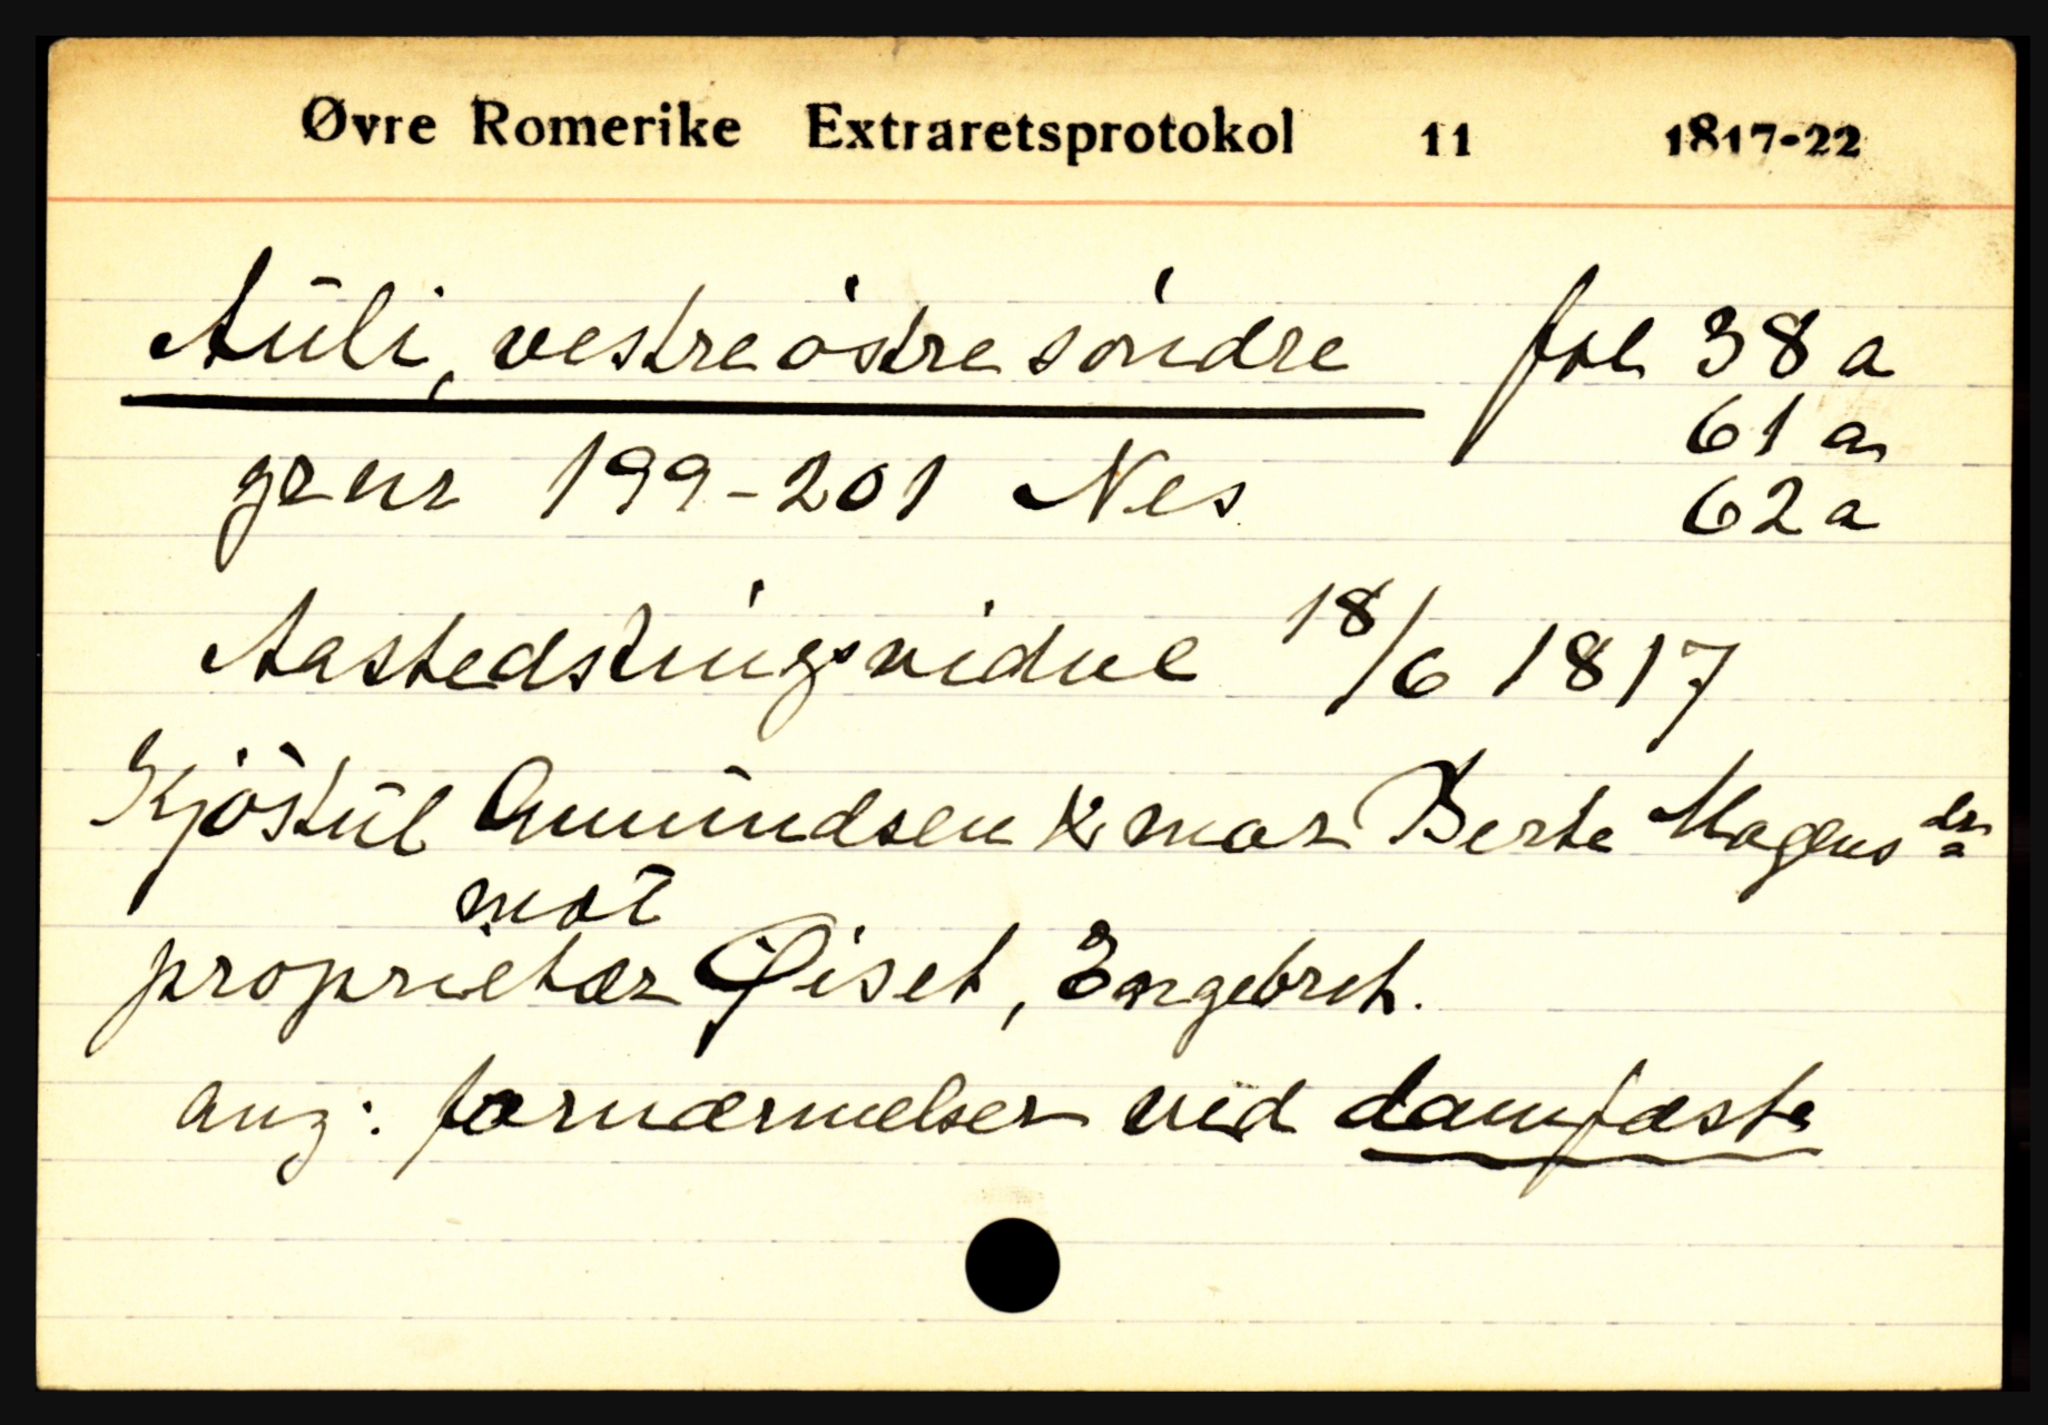 Øvre Romerike Extraretsprotokol 11 1817-22
Auli, vestre østre søndre fol 38 a
61 a
grnr 199-201 Nes
62 a
Aastedstingsvidne 18/6 1817
Kjøstul Amundsen & mor Berte Mogensdr
mot
proprietær Øiset, Engebret.
ang: fornærmelser ved damfæste